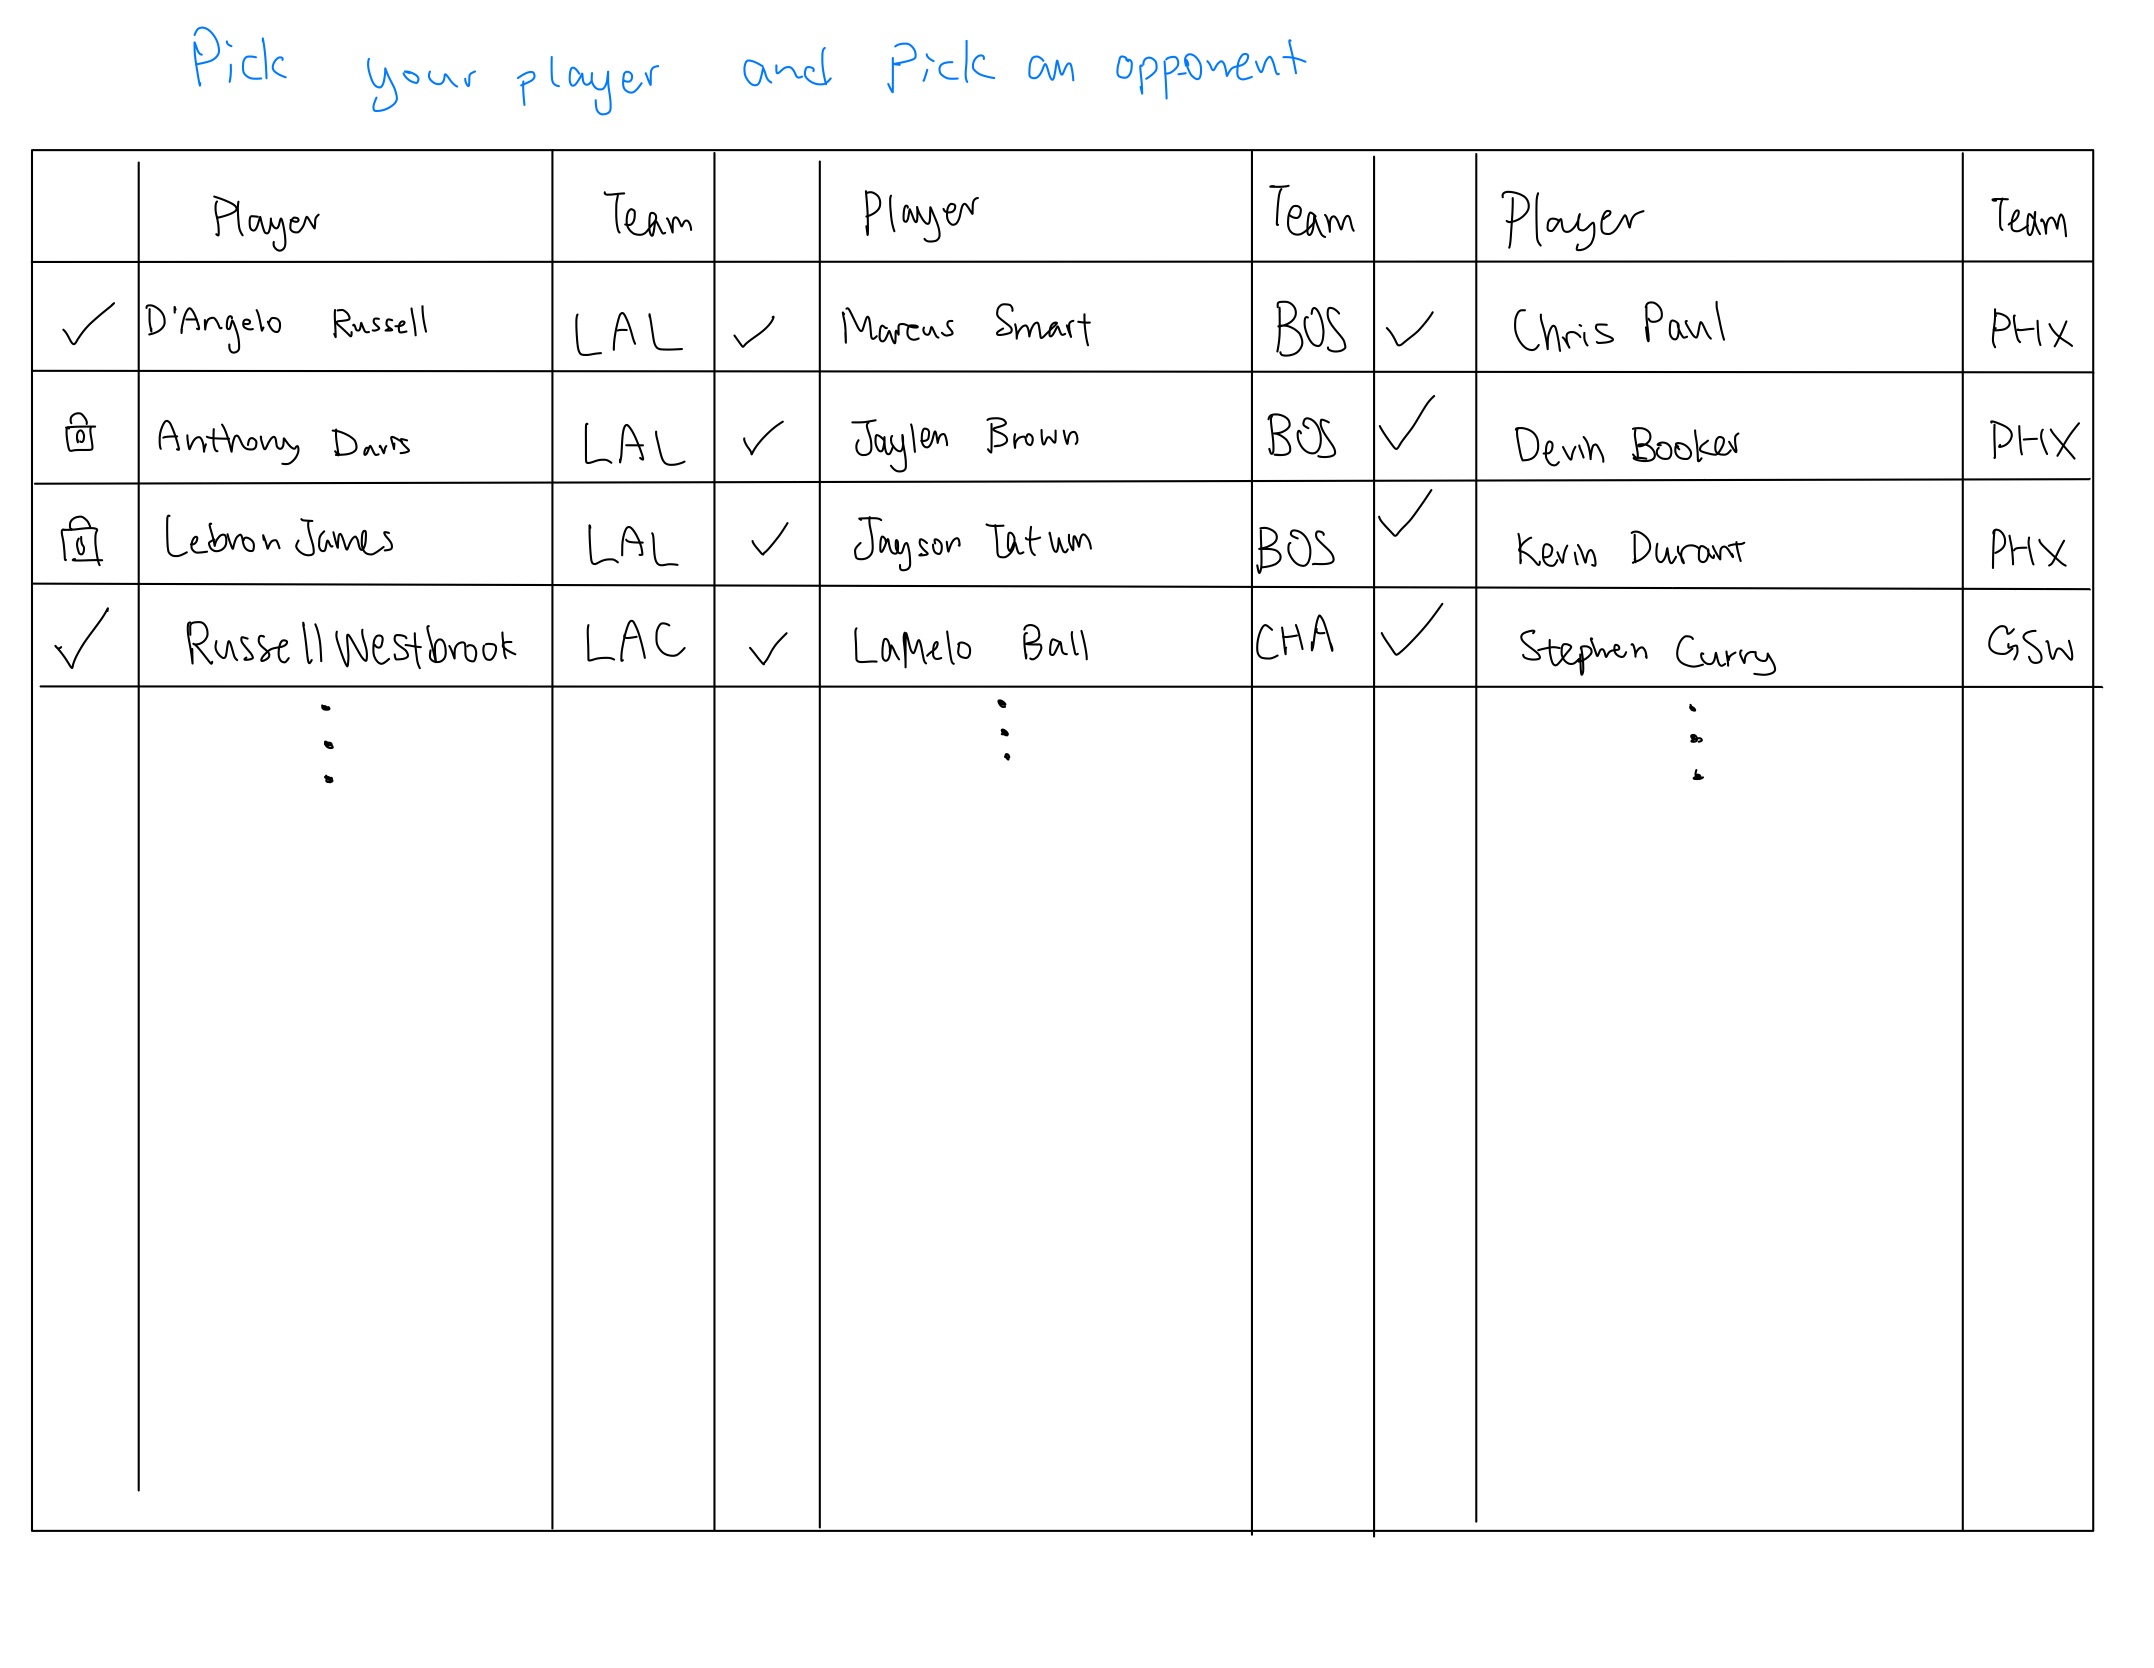 Pick your player and Pick an opponent
Player Team Player Team Player Team
D'Angelo Russell LAL Marcus Smart BOS Chris Paul PHX
Anthony Davis LAL Jaylen Brown BOS Devin Booker PHX
Lebron James LAL Jayson Tatum BOS Kevin Durant PHX
Russell Westbrook LAC LaMelo Ball CHA Stephen Curry GSW